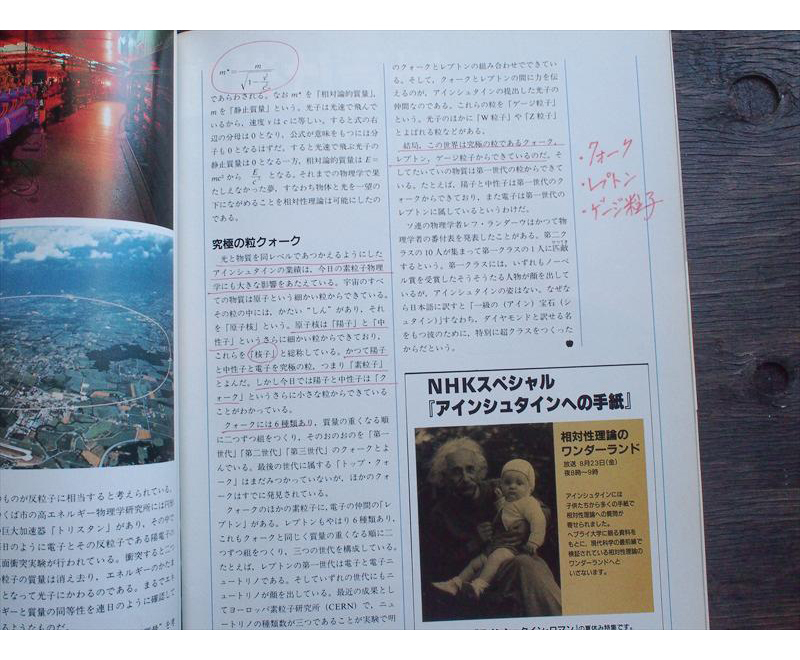 m* = m / √1−v²/c²
であらわされる。なお m* を「相対論的質量」、
m を「静止質量」という。光子は光速で飛んで
いるから、速度 v は c に等しい。すると式の右
辺の分母は0となり、公式が意味をもつには分
子も0となるはずだ。すると光速で飛ぶ光子の
静止質量は0となる一方、相対論的質量は E=
mc² から E/c² となる。それまでの物理学で果
たしえなかった夢、すなわち物体と光を一望の
下にながめることを相対性理論は可能にしたの
である。
究極の粒クォーク
光と物質を同レベルであつかえるようにした
アインシュタインの業績は、今日の素粒子物理
学にも大きな影響をあたえている。宇宙のすべ
ての物質は原子という細かい粒からできている。
その粒の中には、かたい“しん”があり、それ
を「原子核」という。原子核は「陽子」と「中
性子」というさらに細かい粒からできており、
これらを「核子」と総称している。かつて陽子
と中性子と電子を究極の粒、つまり「素粒子」
とよんだ。しかし今日では陽子と中性子は「ク
ォーク」というさらに小さな粒からできている
ことがわかっている。
クォークには6種類あり、質量の重くなる順
に二つずつ組をつくり、そのおのおのを「第一
世代」「第二世代」「第三世代」のクォークとよ
んでいる。最後の世代に属する「トップ・クォ
ーク」はまだみつかっていないが、ほかのクォ
ークはすでに発見されている。
クォークのほかの素粒子に、電子の仲間の「レ
プトン」がある。レプトンもやはり6種類あり、
これもクォークと同じく質量の重くなる順に二
つずつ組をつくり、三つの世代を構成している。
たとえば、レプトンの第一世代は電子と電子ニ
ュートリノである。そしていずれの世代にもニ
ュートリノが顔を出している。最近の成果とし
てヨーロッパ素粒子研究所（CERN）で、ニュ
ートリノの種類数が三つであることが実験で明
のクォークとレプトンの組み合わせでできてい
る。そして、クォークとレプトンの間に力を伝
えるのが、アインシュタインの提出した光子の
仲間なのである。これらの粒を「ゲージ粒子」
という。光子のほかに「W粒子」や「Z粒子」
とよばれる粒などがある。
結局、この世界は究極の粒であるクォーク、
レプトン、ゲージ粒子からできているのだ。そ
してたいていの物質は第一世代の粒からできて
いる。たとえば、陽子と中性子は第一世代のク
ォークからできており、また電子は第一世代の
レプトンに属しているというわけだ。
ソ連の物理学者レフ・ランダーウはかつて物
理学者の番付表を発表したことがある。第二ク
ラスの10人が集まって第一クラスの1人に匹敵
するという。第一クラスには、いずれもノーベ
ル賞を受賞したそうそうたる人物が顔を出して
いるが、アインシュタインの姿はない。なぜな
ら日本語に訳すと「一級の（アイン）宝石（シ
ュタイン）」すなわち、ダイヤモンドと訳せる名
をもつ彼のために、特別に超クラスをつくった
からだという。
・クォーク
・レプトン
・ゲージ粒子
NHKスペシャル
『アインシュタインへの手紙』
相対性理論の
ワンダーランド
放送 8月23日(金)
夜8時〜9時
アインシュタインには
子供たちから多くの手紙で
相対性理論への質問が
寄せられました。
ヘブライ大学に眠る資料を
もとに、現代科学の最前線で
検証されている相対性理論の
ワンダーランドへと
いざないます。
のものが反粒子に相当すると考えられている。
くば市の高エネルギー物理学研究所には
巨大加速器「トリスタン」があり、その中で
日のように電子とその反粒子である陽電子の
面衝突実験が行われている。衝突すると二
粒子の質量は消え去り、エネルギーのかたま
となって光子にかわるのである。まるでエネ
ギーと質量の同等性を連日のように確認して
るようなものだ。
の夏休み特集です。